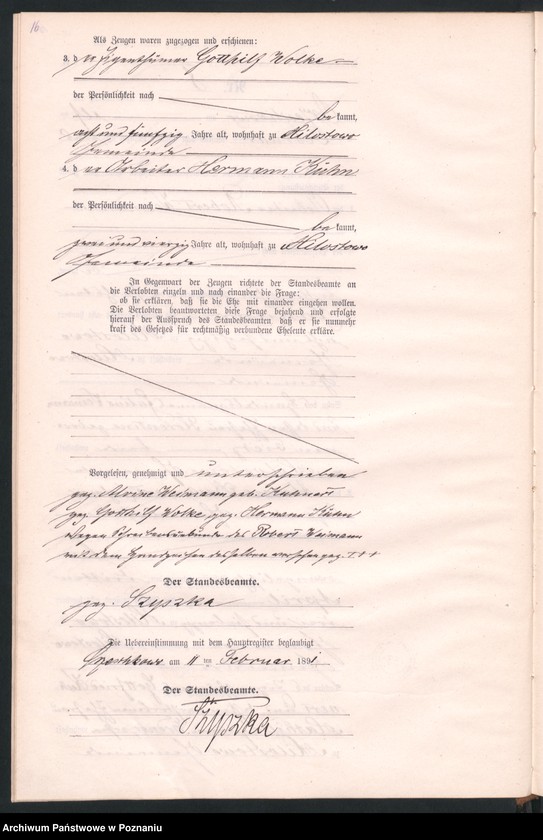 16
Als Zeugen waren zugezogen und erschienen:
3. d er Eigenthümer Gotthilf Wolke
der Persönlichkeit nach
be kannt,
acht und fünfzig Jahre alt, wohnhaft zu
Gemeinde
4. d er Arbeiter Hermann Kühn
der Persönlichkeit nach
be kannt,
zwei und vierzig Jahre alt, wohnhaft zu
Gemeinde
In Gegenwart der Zeugen richtete der Standesbeamte an
die Verlobten einzeln und nach einander die Frage:
ob sie erklären, daß sie die Ehe mit einander eingehen wollen.
Die Verlobten beantworteten diese Frage bejahend und erfolgte
hierauf der Ausspruch des Standesbeamten, daß er sie nunmehr
kraft des Gesetzes für rechtmäßig verbundene Eheleute erkläre.
Vorgelesen, genehmigt und unterschrieben
gez. Weimann geb.
gez. Gotthilf Wolke, gez. Hermann Kühn
Wegen Schreibensunkunde des Robert Weimann
mit dem Handzeichen desselben versehen gez. + + +
Der Standesbeamte.
gez. Szyszka
Die Uebereinstimmung mit dem Hauptregister beglaubigt
am 11 ten Februar 1891
Der Standesbeamte.
Szyszka
Archiwum Państwowe w Poznaniu